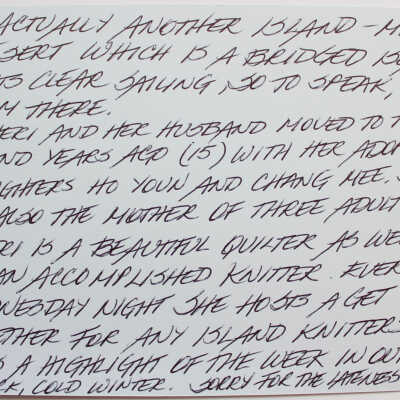 ACTUALLY ANOTHER ISLAND - M
SERT WHICH IS A BRIDGED IS
TS CLEAR SAILING, SO TO SPEAK,
M THERE.
ERI AND HER HUSBAND MOVED TO T
ND YEARS AGO (15) WITH HER ADOP
GHTERS HO YOUN AND CHANG MEE.
ALSO THE MOTHER OF THREE ADULT
RI IS A BEAUTIFUL QUILTER AS WE
AN ACCOMPLISHED KNITTER. EVER
NESDAY NIGHT SHE HOSTS A GET
ETHER FOR ANY ISLAND KNITTERS
S A HIGHLIGHT OF THE WEEK IN OU
RK, COLD WINTER. SORRY FOR THE LATENESS